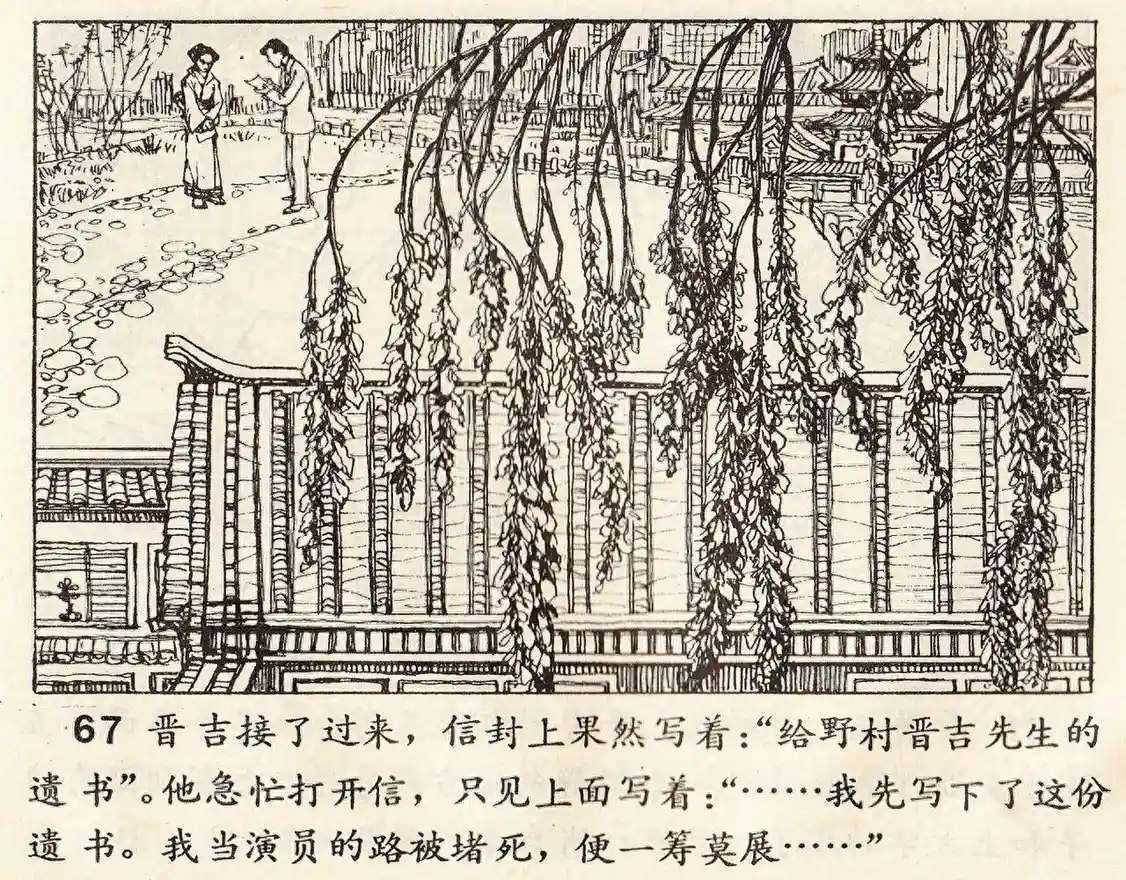 67 晋吉接了过来，信封上果然写着：“给野村晋吉先生的
遗书”。他急忙打开信，只见上面写着：“……我先写下了这份
遗书。我当演员的路被堵死，便一筹莫展……”